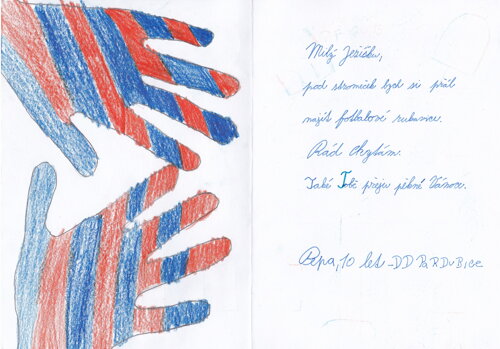 Milý Ježíšku,
pod stromeček bych si přál
najít fotbalové rukavice.
Rád chytám.
Také Tobě přeju pěkné Vánoce.
Pepa, 10 let - DD PARDUBICE